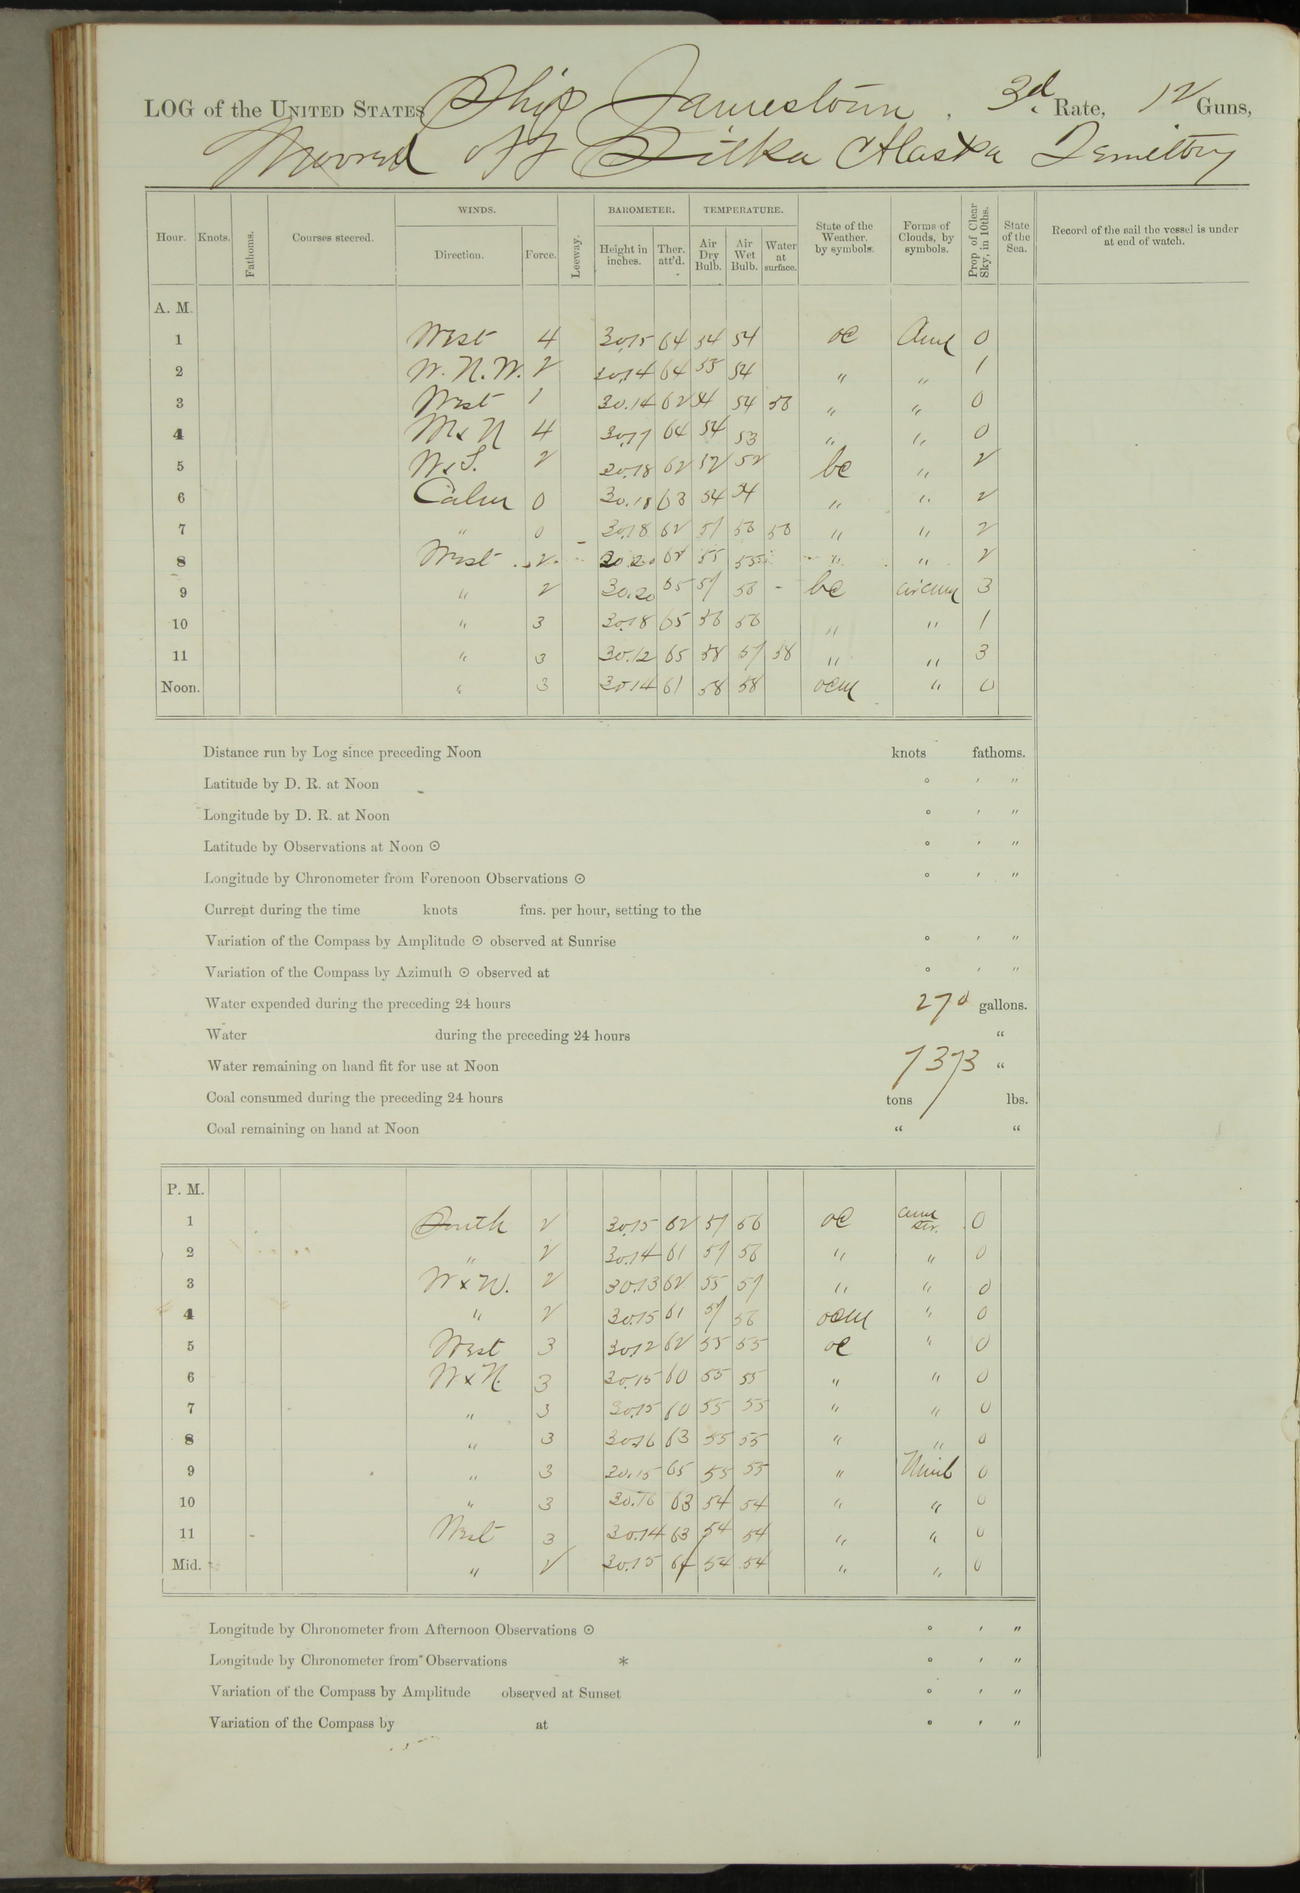 LOG of the UNITED STATES Ship Jamestown, 3d Rate, 12 Guns,
Moored At Sitka Alaska Territory
Hour. Knots. Fathoms. Courses steered. WINDS. Direction. Force. Leeway. BAROMETER. Height in inches. Ther. att'd. TEMPERATURE. Air Dry Bulb. Air Wet Bulb. Water at surface. State of the Weather, by symbols. Forms of Clouds, by symbols. Prop. of Clear Sky, in 10ths. State of the Sea. Record of the sail the vessel is under at end of watch.
A. M.
1 West 4 30.15 64 54 54 oc Cum 0
2 W. N. W. 2 30.14 64 55 54 " " 1
3 West 1 30.14 62 54 54 56 " " 0
4 W x N 4 30.17 64 54 53 " " 0
5 W x S. 2 30.18 62 52 52 bc " 2
6 Calm 0 30.18 63 54 54 " " 2
7 " 0 30.18 62 57 56 56 " " 2
8 West 2 30.20 62 55 55 " " 2
9 " 2 30.20 65 57 56 - bc cir cum 3
10 " 3 30.18 65 56 56 " " 1
11 " 3 30.12 65 58 57 58 " " 3
Noon. " 3 30.14 61 58 58 ocm " 0
Distance run by Log since preceding Noon knots fathoms.
Latitude by D. R. at Noon ° ′ ″
Longitude by D. R. at Noon ° ′ ″
Latitude by Observations at Noon ☉ ° ′ ″
Longitude by Chronometer from Forenoon Observations ☉ ° ′ ″
Current during the time knots fms. per hour, setting to the
Variation of the Compass by Amplitude ☉ observed at Sunrise ° ′ ″
Variation of the Compass by Azimuth ☉ observed at ° ′ ″
Water expended during the preceding 24 hours 270 gallons.
Water during the preceding 24 hours "
Water remaining on hand fit for use at Noon 7373 "
Coal consumed during the preceding 24 hours tons lbs.
Coal remaining on hand at Noon " "
P. M.
1 South 2 30.15 62 57 56 oc cum str. 0
2 " 2 30.14 61 57 56 " " 0
3 W x N. 2 30.13 62 55 57 " " 0
4 " 2 30.15 61 57 56 ocm " 0
5 West 3 30.12 62 55 55 oc " 0
6 W x N. 3 30.15 60 55 55 " " 0
7 " 3 30.15 60 55 55 " " 0
8 " 3 30.16 63 55 55 " " 0
9 " 3 30.15 65 55 55 " Nimb 0
10 " 3 30.16 63 54 54 " " 0
11 West 3 30.14 63 54 54 " " 0
Mid. " 2 30.15 64 54 54 " " 0
Longitude by Chronometer from Afternoon Observations ☉ ° ′ ″
Longitude by Chronometer from Observations * ° ′ ″
Variation of the Compass by Amplitude observed at Sunset ° ′ ″
Variation of the Compass by at ° ′ ″